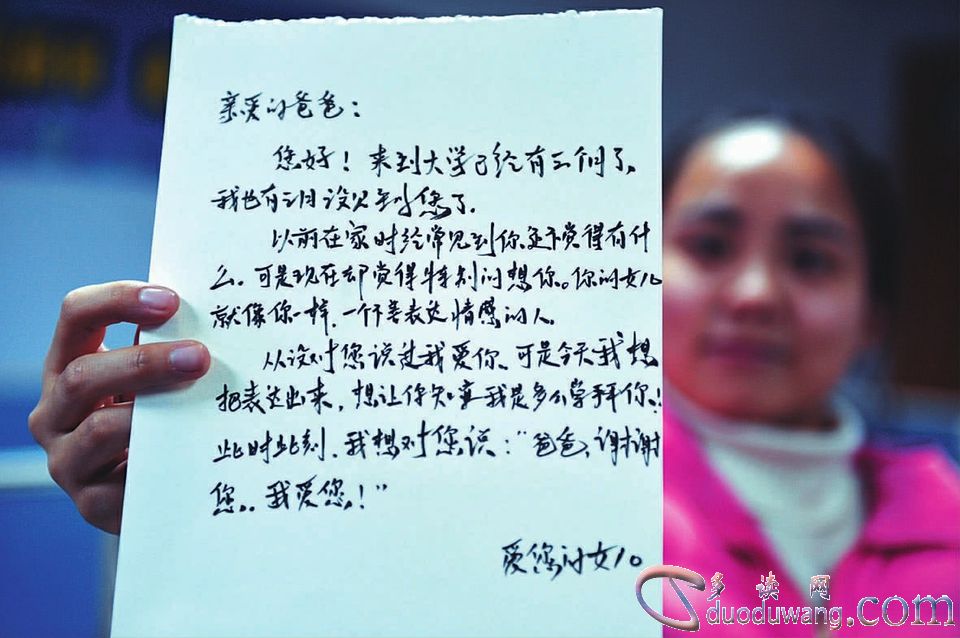 亲爱的爸爸：
您好！来到大学已经有三个了。
我也有三月没见到您了.
以前在家时经常见到你还不觉得有什
么。可是现在却觉得特别的想你。你的女儿
就像你一样，一个不善表达情感的人.
从没对您说过我爱你.可是今天我想
把表达出来，想让你知道我是多么崇拜你！
此时此刻，我想对您说：“爸爸，谢谢
您，我爱您！”
爱您的女儿
多读网
duoduwang.com